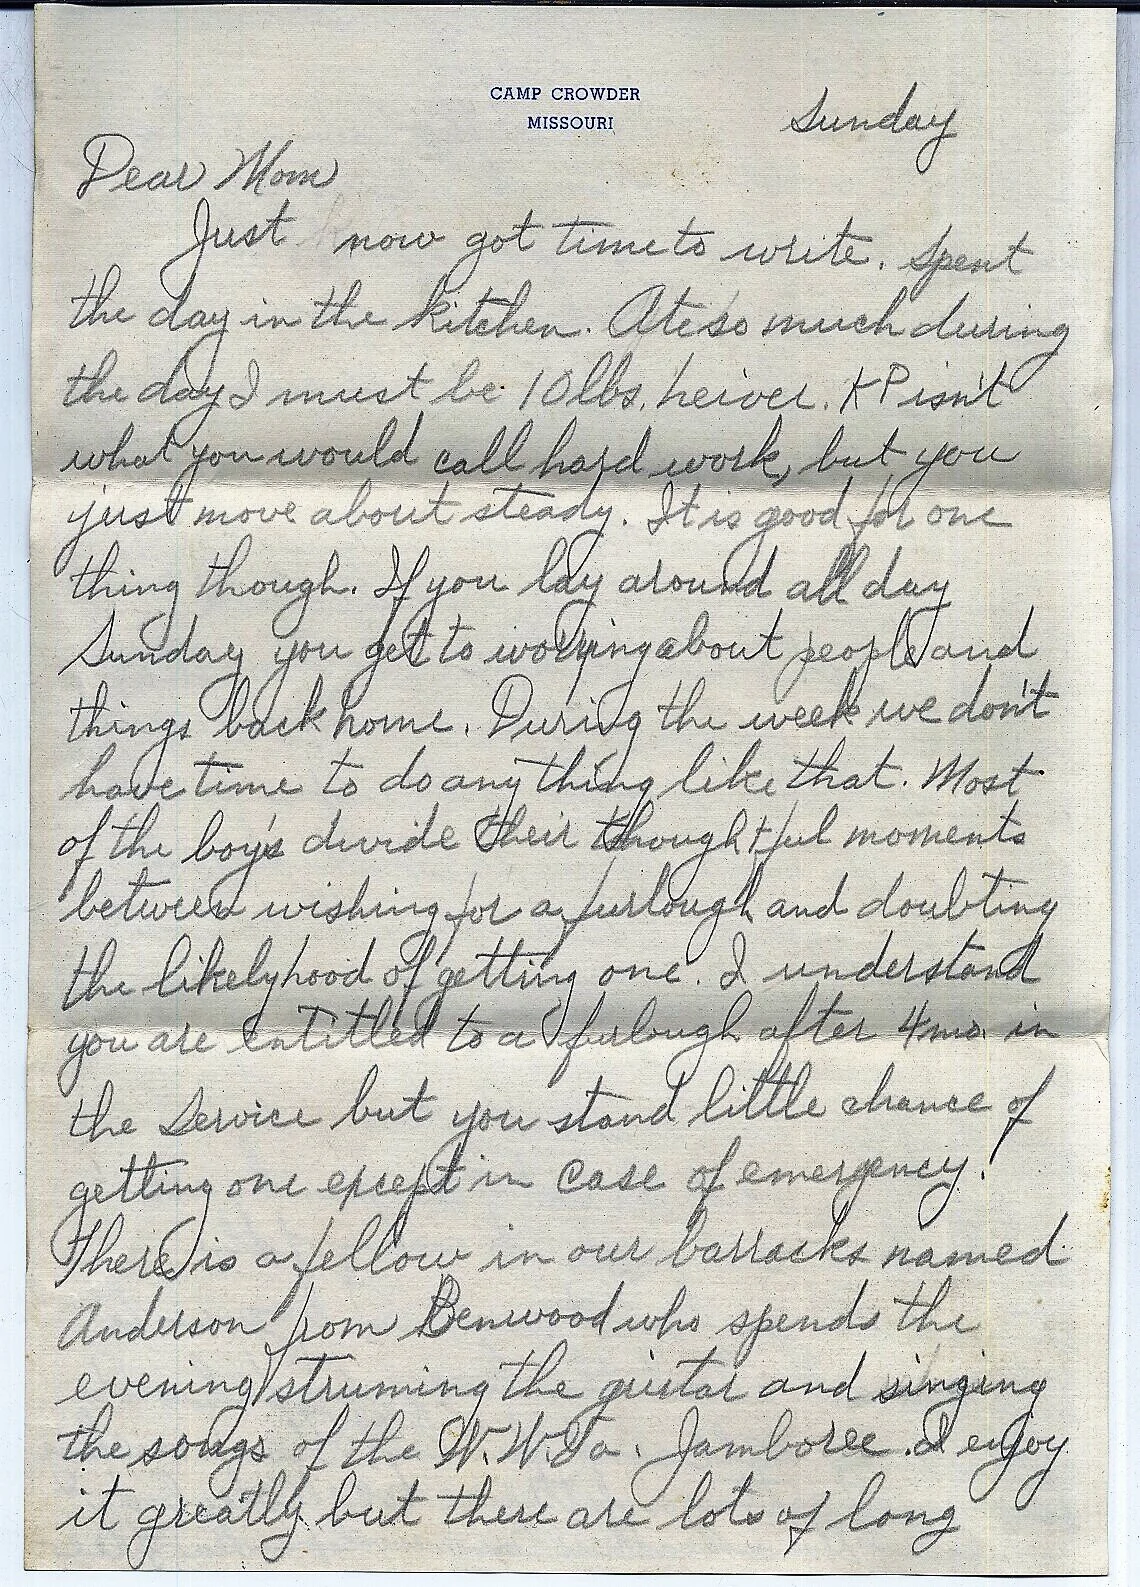 CAMP CROWDER
MISSOURI
Sunday
Dear Mom
Just now got time to write. Spent
the day in the kitchen. Ate so much during
the day I must be 10 lbs. heiver. KP isn't
what you would call hard work, but you
just move about steady. It is good for one
thing though. If you lay around all day
Sunday you get to worrying about people and
things back home. During the week we don't
have time to do anything like that. Most
of the boy's divide their thoughtful moments
between wishing for a furlough and doubting
the likelyhood of getting one. I understand
you are entitled to a furlough after 4 mo. in
the Service but you stand little chance of
getting one except in case of emergency.
There is a fellow in our barracks named
Anderson from Benwood who spends the
evening struming the guitar and singing
the songs of the W.W.Va. Jamboree. I enjoy
it greatly but there are lots of long